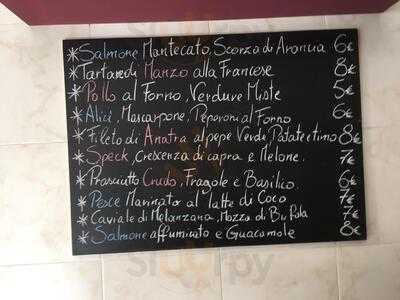 * Salmone Mantecato, Scorza di Arancia 6€
* Tartare di Manzo alla Francese 8€
* Pollo al Forno, Verdure Miste 5€
* Alici, Mascarpone, Peperoni al Forno 6€
* Fileto di Anatra al pepe Verde, Patate e timo 8€
* Speck, crescenza di capra e Melone. 7€
* Prosciutto Crudo, Fragole e Basilico. 6€
* Pesce Marinato al latte di Coco 7€
* Caviale di Melanzana, Mozza di Bu Pala 7€
* Salmone affumicato e Guacamole 8€